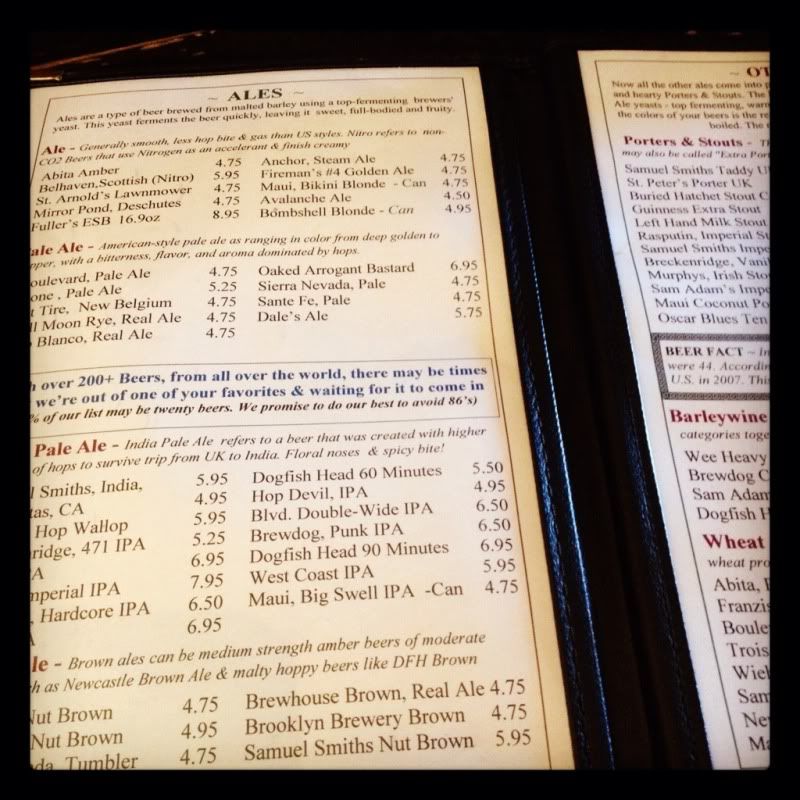 ~ ALES ~
Ales are a type of beer brewed from malted barley using a top-fermenting brewers'
yeast. This yeast ferments the beer quickly, leaving it sweet, full-bodied and fruity.
Ale - Generally smooth, less hop bite & gas than US styles. Nitro refers to non-
CO2 Beers that use Nitrogen as an accelerant & finish creamy
Abita Amber 4.75
Belhaven,Scottish (Nitro) 5.95
St. Arnold's Lawnmower 4.75
Mirror Pond, Deschutes 4.75
Fuller's ESB 16.9oz 8.95
Anchor, Steam Ale 4.75
Fireman's #4 Golden Ale 4.75
Maui, Bikini Blonde - Can 4.75
Avalanche Ale 4.50
Bombshell Blonde - Can 4.95
Pale Ale - American-style pale ale as ranging in color from deep golden to
pper, with a bitterness, flavor, and aroma dominated by hops.
oulevard, Pale Ale 4.75
one , Pale Ale 5.25
t Tire, New Belgium 4.75
ll Moon Rye, Real Ale 4.75
Blanco, Real Ale 4.75
Oaked Arrogant Bastard 6.95
Sierra Nevada, Pale 4.75
Sante Fe, Pale 4.75
Dale's Ale 5.75
h over 200+ Beers, from all over the world, there may be times
we're out of one of your favorites & waiting for it to come in
% of our list may be twenty beers. We promise to do our best to avoid 86's)
Pale Ale - India Pale Ale refers to a beer that was created with higher
of hops to survive trip from UK to India. Floral noses & spicy bite!
l Smiths, India, 5.95
tas, CA 4.95
Hop Wallop 5.95
ridge, 471 IPA 5.25
A 6.95
mperial IPA 7.95
, Hardcore IPA 6.50
A 6.95
Dogfish Head 60 Minutes 5.50
Hop Devil, IPA 4.95
Blvd. Double-Wide IPA 6.50
Brewdog, Punk IPA 6.50
Dogfish Head 90 Minutes 6.95
West Coast IPA 5.95
Maui, Big Swell IPA -Can 4.75
le - Brown ales can be medium strength amber beers of moderate
h as Newcastle Brown Ale & malty hoppy beers like DFH Brown
Nut Brown 4.75
Nut Brown 4.95
da, Tumbler 4.75
Brewhouse Brown, Real Ale 4.75
Brooklyn Brewery Brown 4.75
Samuel Smiths Nut Brown 5.95
~ OT
Now all the other ales come into p
and hearty Porters & Stouts. The
Ale yeasts - top fermenting, warm
the colors of your beers is the re
boiled. The
Porters & Stouts - Th
may also be called "Extra Por
Samuel Smiths Taddy U
St. Peter's Porter UK
Buried Hatchet Stout C
Guinness Extra Stout
Left Hand Milk Stout
Rasputin, Imperial St
Samuel Smiths Impe
Breckenridge, Vani
Murphys, Irish Sto
Sam Adam's Impe
Maui Coconut Po
Oscar Blues Ten
BEER FACT ~ In
were 44. Accordin
U.S. in 2007. This
Barleywine
categories toge
Wee Heavy
Brewdog C
Sam Adam
Dogfish H
Wheat
wheat pro
Abita,
Franzis
Boule
Trois
Wie
Sam
Ne
Ma